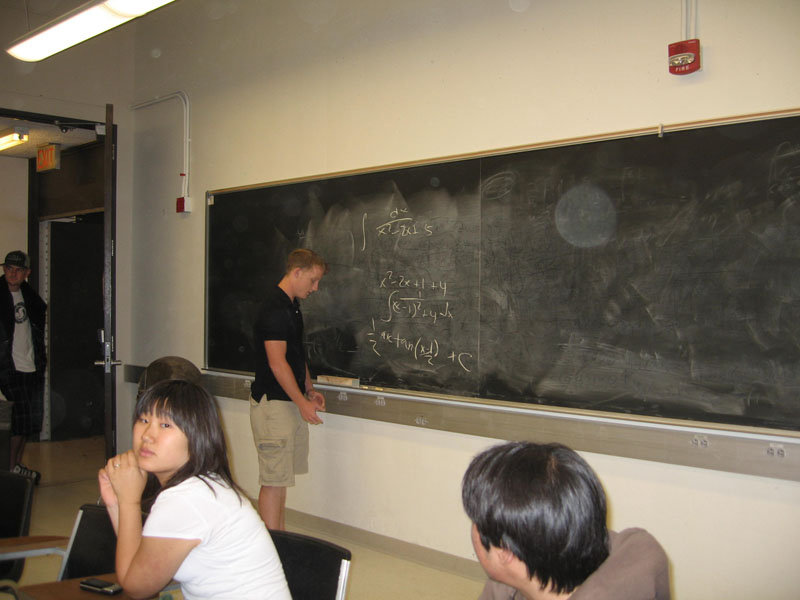 FIRE
EXIT
∫ dx / x² - 2x + 5
x² - 2x + 1 + 4
∫ 1 / (x-1)² + 4 dx
1/2 arctan (x-1 / 2) + C